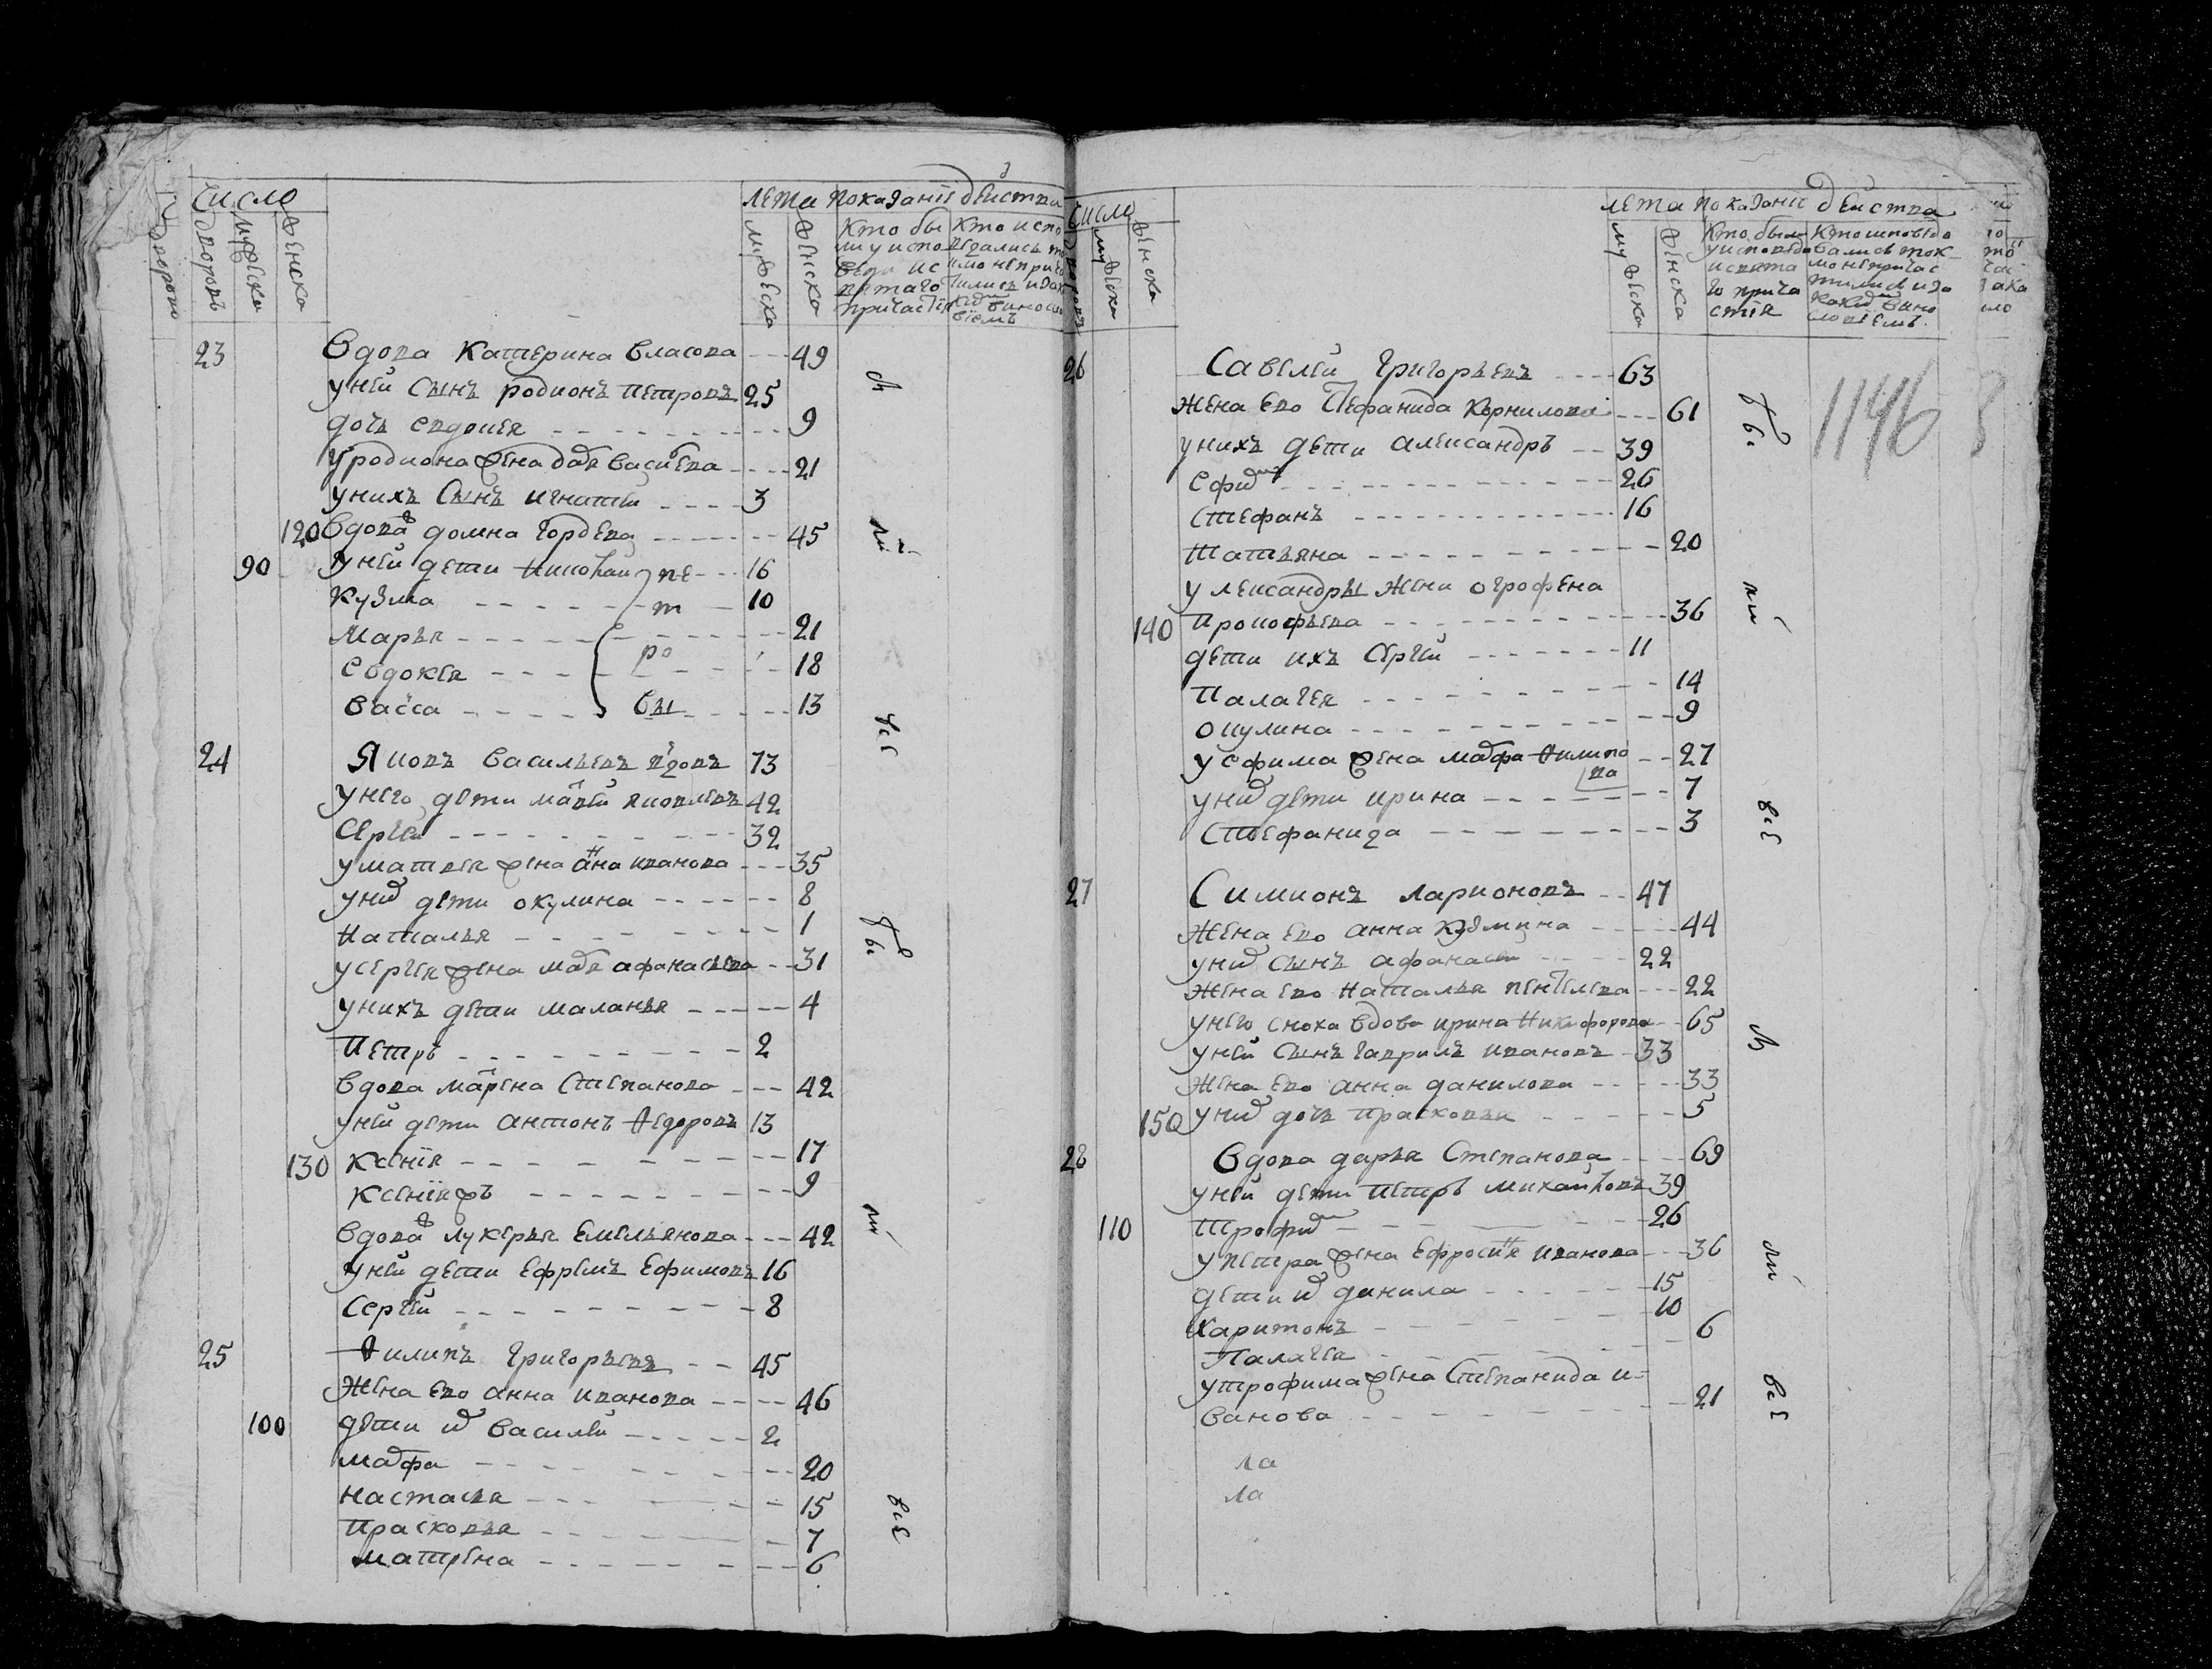 число
лета показаніе действа
дворовъ
мужеска
женска
мужеска
женска
Кто бы
ли у испо
веди и с
вятаго
причастія
Кто испо
ведались то
кмо не прича
стились и за
каким виносло
віемъ
23 Вдова Катерина Власова 49
у ней сынъ Родионъ Петровъ 25
дочь Евдокея 9
у Родиона жена Дарья Васильева 21
у нихъ сынъ Игнатей 3
120 Вдова Домна Гордеева 45
90 у ней дети Николай пе 16
Кузма т 10
Марья 21
Евдокея ро 18
Васса вы 13
24 Яковъ Васильевъ вдовъ 73
у него дети Матвей Яковлевъ 42
Сергей 32
у Матвея жена Анна Иванова 35
у них дети Окулина 8
Наталья 1
у Сергея жена Марья Афанасьева 31
у нихъ дети Маланья 4
Петръ 2
Вдова Марена Степанова 42
у ней дети Антонъ Федоровъ 13
130 Ксенія 17
Ксеніяжъ 9
Вдова Лукерья Емельянова 42
у ней дети Ефремъ Ефимовъ 16
Сергей 8
25 Филипъ Григорьевъ 45
Жена ево Анна Иванова 46
100 дети их Василей 2
Марфа 20
Настасья 15
Прасковья 7
Матрена 6
число
лета показаніе действа
мужеска
женска
мужеска
женска
Кто были
у исповеди
и свята
го прича
стія
Кто исповедо
вались ток
мо не причас
тились и за
каким вино
словіемъ
26 Савелей Григорьевъ 63
Жена ево Стефанида Корнилова 61
у нихъ дети Александръ 39
Ефим 26
Стефанъ 16
Татьяна 20
у Лександры жени Огрофена
140 Прокофьева 36
дети ихъ Сергей 11
Палагея 14
Окулина 9
у Ефима жена Марфа Филипо
ва 27
у них дети Ирина 7
Стефанида 3
27 Симионъ Ларионовъ 47
Жена ево Анна Кузмина 44
у них сынъ Афанасей 22
Жена ево Наталья Пентелева 22
у него сноха вдова Ирина Никифорова 65
у ней сынъ Гаврилъ Ивановъ 33
Жена ево Анна Данилова 33
150 у них дочь Прасковья 5
28 Вдова Дарья Степанова 69
у ней дети Петръ Михайловъ 39
110 Трофим 26
у Петра жена Ефросинья Иванова 36
дети их Данила 15
Харитонъ 10
Палагея 6
у Трофима жена Степанида И=
ванова 21
ла
ла
1146